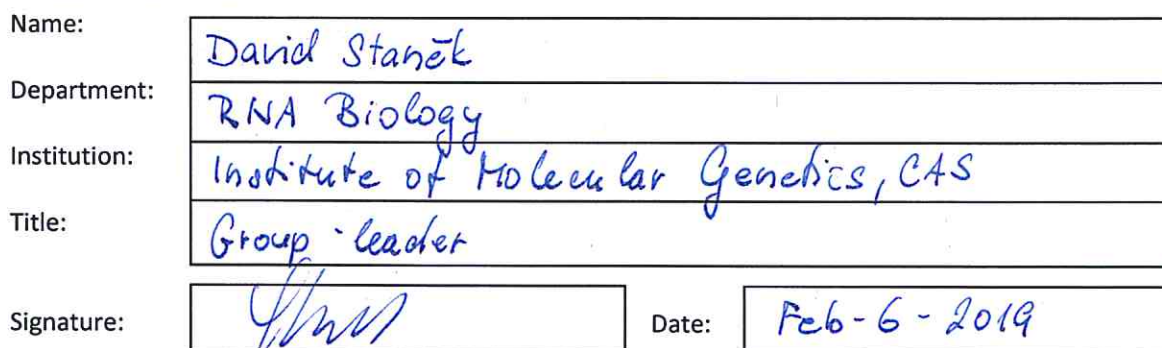 Name: David Staněk
Department: RNA Biology
Institution: Institute of Molecular Genetics, CAS
Title: Group-leader
Signature: Date: Feb-6-2019